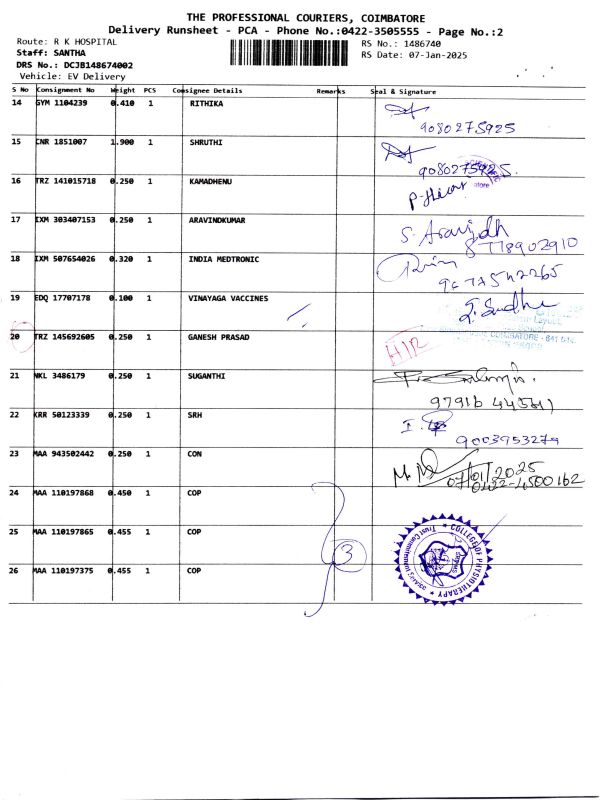 THE PROFESSIONAL COURIERS, COIMBATORE
Delivery Runsheet - PCA - Phone No.:0422-3505555 - Page No.:2
Route: R K HOSPITAL RS No.: 1486740
Staff: SANTHA RS Date: 07-Jan-2025
DRS No.: DCJB148674002
Vehicle: EV Delivery
S No Consignment No Weight PCS Consignee Details Remarks Seal & Signature
14 GYM 1104239 0.410 1 RITHIKA
9080275925
15 CNR 1851007 1.900 1 SHRUTHI
9080275925.
16 TRZ 141015718 0.250 1 KAMADHENU
17 IXM 303407153 0.250 1 ARAVINDKUMAR
S. Aravindh
7718902910
18 IXM 507654026 0.320 1 INDIA MEDTRONIC
19 EDQ 17707178 0.100 1 VINAYAGA VACCINES
20 TRZ 145692605 0.250 1 GANESH PRASAD
COIMBATORE - 641
21 NKL 3486179 0.250 1 SUGANTHI
22 KRR 50123339 0.250 1 SRH
9003953279
23 MAA 943502442 0.250 1 CON
07/01/2025
0422-4500162
24 MAA 110197868 0.450 1 COP
25 MAA 110197865 0.455 1 COP
3
COLLEGE OF PHYSIOTHERAPY
26 MAA 110197375 0.455 1 COP